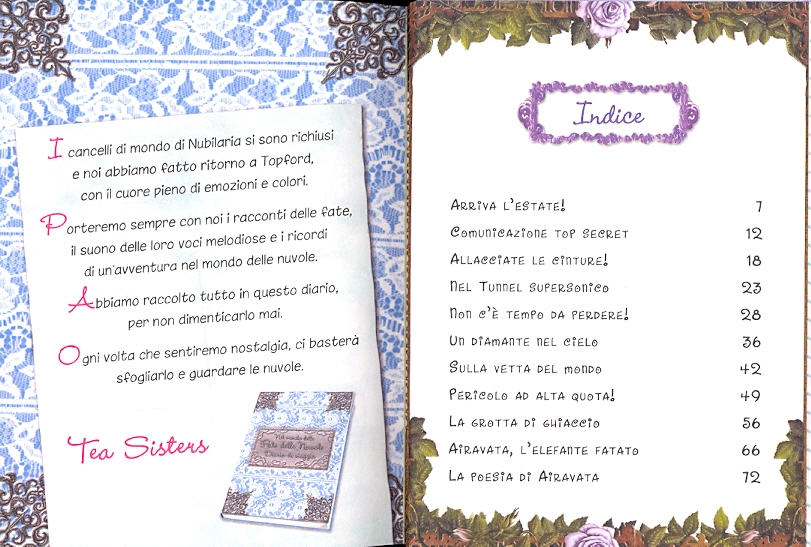 I cancelli di mondo di Nubilaria si sono richiusi
e noi abbiamo fatto ritorno a Topford,
con il cuore pieno di emozioni e colori.
Porteremo sempre con noi i racconti delle fate,
il suono delle loro voci melodiose e i ricordi
di un'avventura nel mondo delle nuvole.
Abbiamo raccolto tutto in questo diario,
per non dimenticarlo mai.
Ogni volta che sentiremo nostalgia, ci basterà
sfogliarlo e guardare le nuvole.
Tea Sisters
Nel mondo delle
Fate delle Nuvole
Diario di viaggio
Indice
Arriva l'estate! 7
Comunicazione top secret 12
Allacciate le cinture! 18
Nel Tunnel supersonico 23
Non c'è tempo da perdere! 28
Un diamante nel cielo 36
Sulla vetta del mondo 42
Pericolo ad alta quota! 49
La grotta di ghiaccio 56
Airavata, l'elefante fatato 66
La poesia di Airavata 72